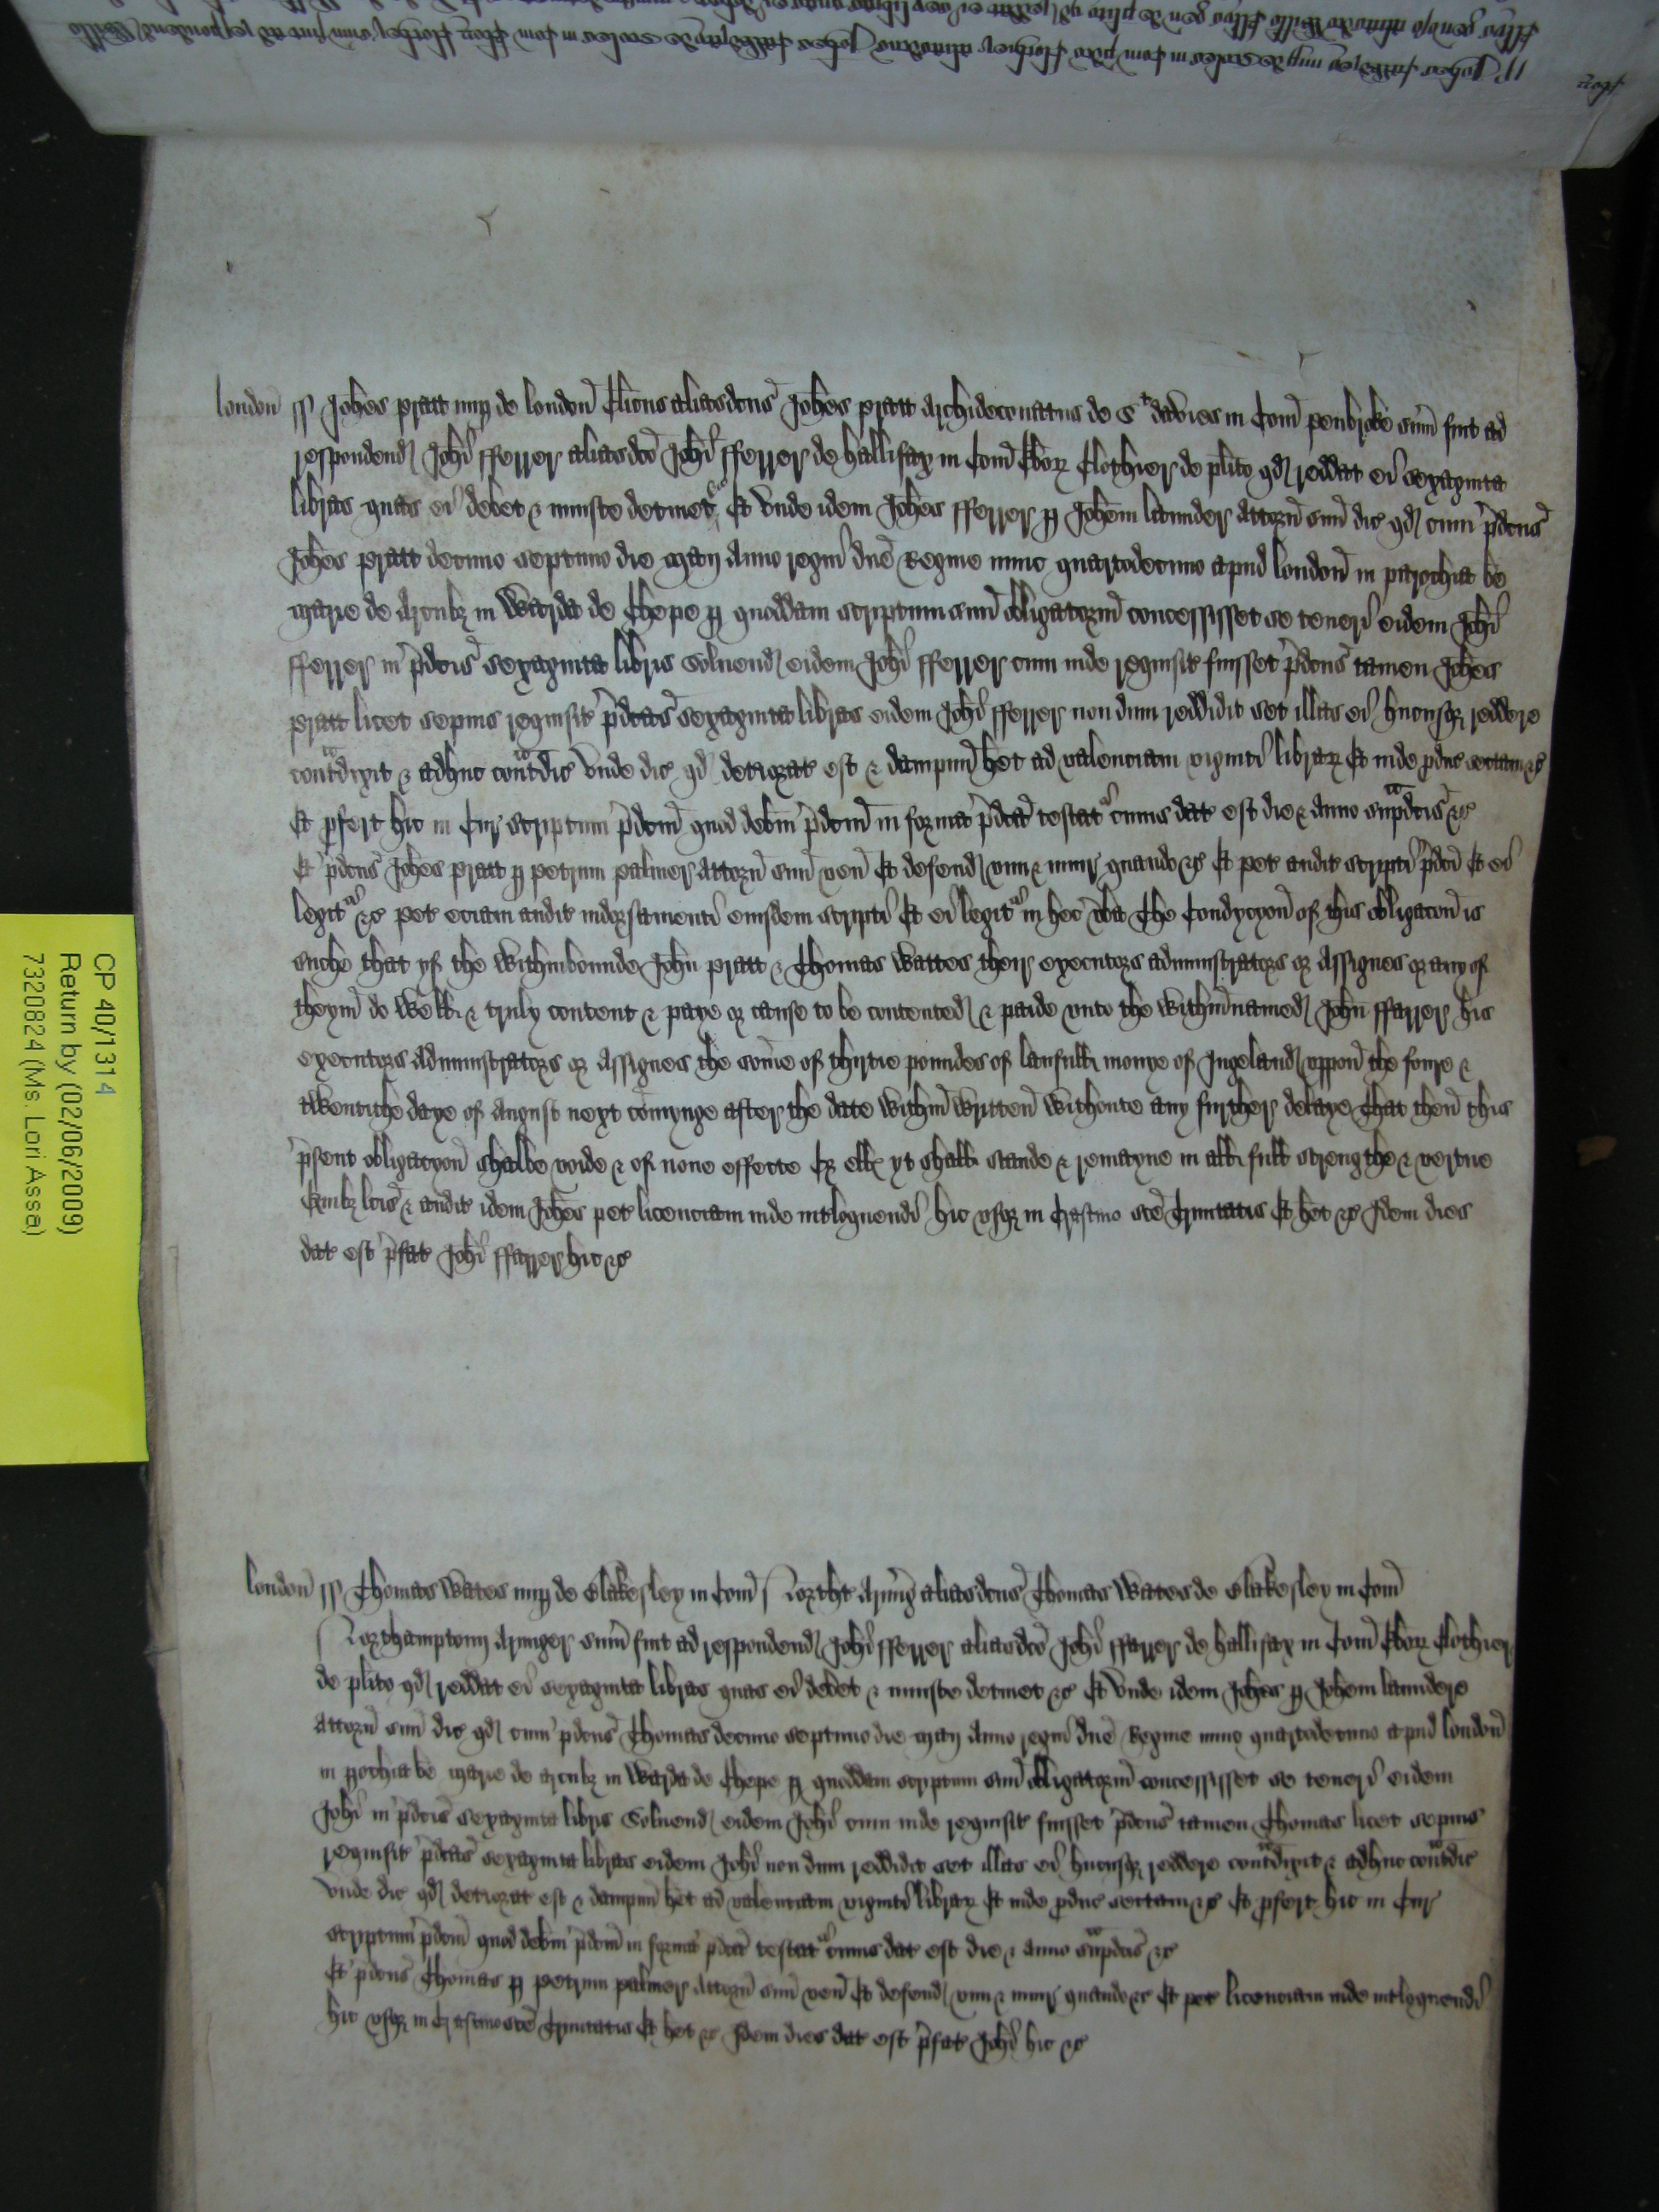 london ss Johes pratt nup de london Clicus aliasdcus Johes pratt Archideconatus de St davies in Com penbroke sum fuit ad
respondend Johi fferrer aliasdco Johi fferrer de hallifax in Com Ebor Clothier de plito qd reddat ei sexaginta
libras quas ei debet & iniuste detinet &c Et vnde idem Johes fferrer p Johem launder Attorn suu dic qd cum pdcus
Johes pratt decimo septimo die maij Anno regni dne Regine nunc quartodecimo apud london in parochia be
marie de Arcubz in Warda de Chepe p quoddam scriptum suu obligatoriu concessisset se teneri eidem Johi
fferrer in pdcis sexaginta libris soluend eidem Johi fferrer cum inde requisit fuisset pdcus tamen Johes
pratt licet sepius requisit pdcas sexaginta libras eidem Johi fferrer non dum reddidit set illas ei hucusqz reddere
contradixit & adhuc contradic vnde dic qd deteriorat est & dampnu het ad valenciam viginti librar Et inde pduc sectam &c
Et pfert hic in Cur scriptum pdcm quod debm pdcm in forma pdca testatur cuius dat est die & anno supradcis &c
Et pdcus Johes pratt p petrum palmer Attorn suu ven Et defend vim & iniur quando &c Et pet audit scripti pdci Et ei
legitur &c pet eciam audit indorsamenti eiusdem scripti Et ei legitur in hec vba The Condycyon of this obligacon is
suche that yf the withinbounde John pratt & Thomas Wattes theyr executors administrators or Assignes or any of
theym do well & truly content & paye or cause to be contented & paide vnto the withinnamed John ffarrer his
executors Administrators or Assignes the some of thirtie poundes of laufull monye of Ingeland vppon the foure &
twentithe daye of August next comynge after the date within written withoute any further delaye That then this
psent obligacyon shalbe voide & of none effecte Or ells yt shall stande & remayne in all full strengthe & vertue
Quibz lcis & audit idem Johes pet licenciam inde intloquendi hic vsqz in Crastino sce Trinitatis Et het &c Idem dies
dat est pfat Johi ffarrer hic &c
london ss Thomas Wates nup de Blakesley in Com Northt Armig aliasdcus Thomas Wates de Blakesley in Com
Northampton Armiger sum fuit ad respondend Johi fferrer aliasdco Johi ffarrer de hallifax in Com Ebor Clothier
de plito qd reddat ei sexaginta libras quas ei debet & iniuste detinet &c Et vnde idem Johes p Johem laundere
Attorn suu dic qd cum pdcus Thomas decimo septimo die maij Anno regni dne Regine nunc quartodecimo apud london
in pochia be marie de Arcubz in Warda de Chepe p quoddam scriptum suu obligatoriu concessisset se teneri eidem
Johi in pdcis sexaginta libris Soluend eidem Johi cum inde requisit fuisset pdcus tamen Thomas licet sepius
requisit pdcas sexaginta libras eidem Johi non dum reddidit set illas ei hucusqz reddere contradixit & adhuc contradic
vnde dic qd deteriorat est & dampnu het ad valenciam viginti librar Et inde pduc sectam &c Et pfert hic in Cur
scriptum pdcm quod debm pdcm in forma pdca testatur cuius dat est die & anno supradcis &c
Et pdcus Thomas p petrum palmer Attorn suu ven Et defend vim & iniur quando &c Et pet licenciam inde intloquendi
hic vsqz in Crastino sce Trinitatis Et het &c Idem dies dat est pfat Johi hic &c
CP 40/1314
Return by (02/06/2009)
7320824 (Ms. Lori Assea)